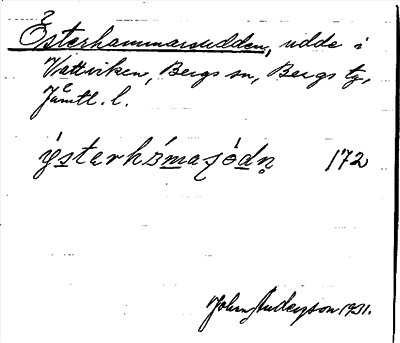 Österhammarsudden, udde i
Vattviken, Bergs sn, Bergs tg,
Jämtl. l.
172
John Anderson 1931.